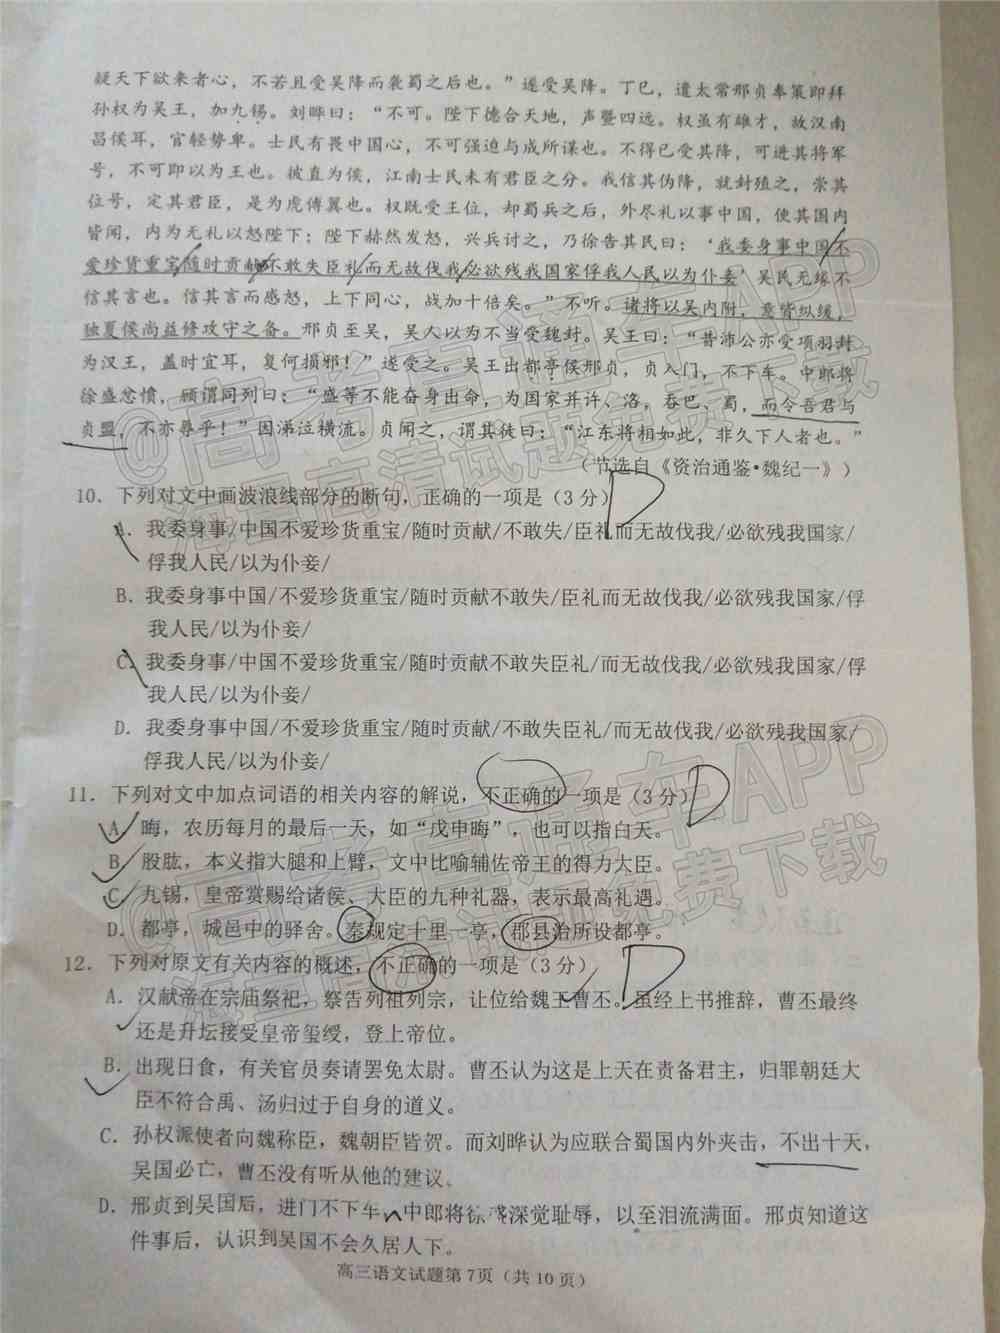 疑天下欲来者心，不若且受吴降而袭蜀之后也。”遂受吴降。丁巳，遣太常邢贞奉策即拜
孙权为吴王，加九锡。刘晔曰：“不可。陛下德合天地，声暨四远。权虽有雄才，故汉南
昌侯耳，官轻势卑。士民有畏中国心，不可强迫与成所谋也。不得已受其降，可进其将军
号，不可即以为王也。彼直为侯，江南士民未有君臣之分。我信其伪降，就封殖之，崇其
位号，定其君臣，是为虎傅翼也。权既受王位，却蜀兵之后，外尽礼以事中国，使其国内
皆闻，内为无礼以怒陛下；陛下赫然发怒，兴兵讨之，乃徐告其民曰：‘我委身事中国不
爱珍货重宝随时贡献不敢失臣礼而无故伐我必欲残我国家俘我人民以为仆妾’吴民无缘不
信其言也。信其言而感怒，上下同心，战加十倍矣。”不听。诸将以吴内附，意皆纵缓，
独夏侯尚益修攻守之备。邢贞至吴，吴人以为不当受魏封。吴王曰：“昔沛公亦受项羽封
为汉王，盖时宜耳，复何损邪！”遂受之。吴王出都亭侯邢贞，贞入门，不下车。中郎将
徐盛忿愤，顾谓同列曰：“盛等不能奋身出命，为国家并许、洛，吞巴、蜀，而令吾君与
贞盟，不亦辱乎！”因涕泣横流。贞闻之，谓其徒曰：“江东将相如此，非久下人者也。”
（节选自《资治通鉴·魏纪一》）
10．下列对文中画波浪线部分的断句，正确的一项是（3分）D
A．我委身事/中国不爱珍货重宝/随时贡献/不敢失/臣礼而无故伐我/必欲残我国家/
俘我人民/以为仆妾/
B．我委身事中国/不爱珍货重宝/随时贡献不敢失/臣礼而无故伐我/必欲残我国家/俘
我人民/以为仆妾/
C．我委身事/中国不爱珍货重宝/随时贡献不敢失臣礼/而无故伐我/必欲残我国家/俘
我人民/以为仆妾/
D．我委身事中国/不爱珍货重宝/随时贡献/不敢失臣礼/而无故伐我/必欲残我国家/
俘我人民/以为仆妾/
11．下列对文中加点词语的相关内容的解说，不正确的一项是（3分）D
A．晦，农历每月的最后一天，如“戊申晦”，也可以指白天。
B．股肱，本义指大腿和上臂，文中比喻辅佐帝王的得力大臣。
C．九锡，皇帝赏赐给诸侯、大臣的九种礼器，表示最高礼遇。
D．都亭，城邑中的驿舍。秦规定十里一亭，郡县治所设都亭。
12．下列对原文有关内容的概述，不正确的一项是（3分）D
A．汉献帝在宗庙祭祀，祭告列祖列宗，让位给魏王曹丕。虽经上书推辞，曹丕最终
还是升坛接受皇帝玺绶，登上帝位。
B．出现日食，有关官员奏请罢免太尉。曹丕认为这是上天在责备君主，归罪朝廷大
臣不符合禹、汤归过于自身的道义。
C．孙权派使者向魏称臣，魏朝臣皆贺。而刘晔认为应联合蜀国内外夹击，不出十天，
吴国必亡，曹丕没有听从他的建议。
D．邢贞到吴国后，进门不下车，中郎将徐盛深觉耻辱，以至泪流满面。邢贞知道这
件事后，认识到吴国不会久居人下。
高三语文试题第7页（共10页）
@高考直通车APP
海量高清试题免费下载
@高考直通车APP
海量高清试题免费下载